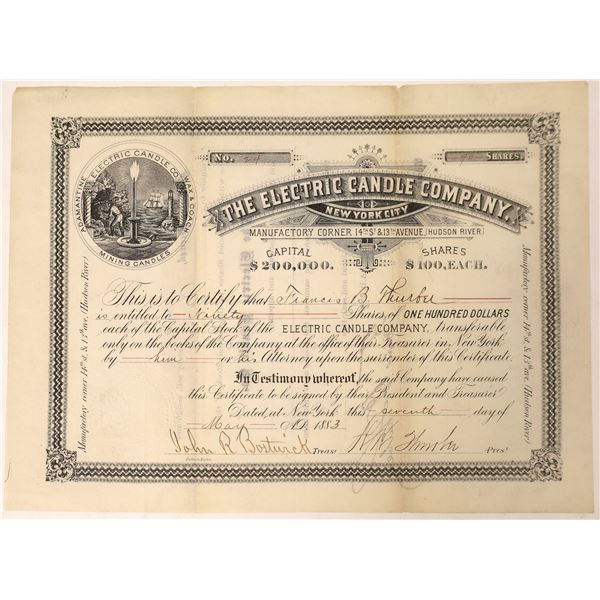 No. 24
90 SHARES
ELECTRIC CANDLE CO.
ADAMANTINE
WAX & COACH
MINING CANDLES
THE ELECTRIC CANDLE COMPANY.
NEW YORK CITY
MANUFACTORY CORNER 14TH ST & 13TH AVENUE, (HUDSON RIVER)
CAPITAL
$200,000.
SHARES
$100, EACH.
This is to Certify that Francis B Thurber
is entitled to Ninety Shares of ONE HUNDRED DOLLARS
each of the Capital Stock of the ELECTRIC CANDLE COMPANY, transferable
only on the books of the Company at the office of their Treasurer in New York
by him or his Attorney upon the surrender of this Certificate.
In Testimony whereof, the said Company have caused
this Certificate to be signed by their President and Treasurer
Dated, at New York this seventh day of
May A.D. 1883
John R Bostwick Treas.
Thurber Pres't
Manufactory corner 14th st. & 13th ave. (Hudson River)
Manufactory corner 14th st. & 13th ave. (Hudson River)